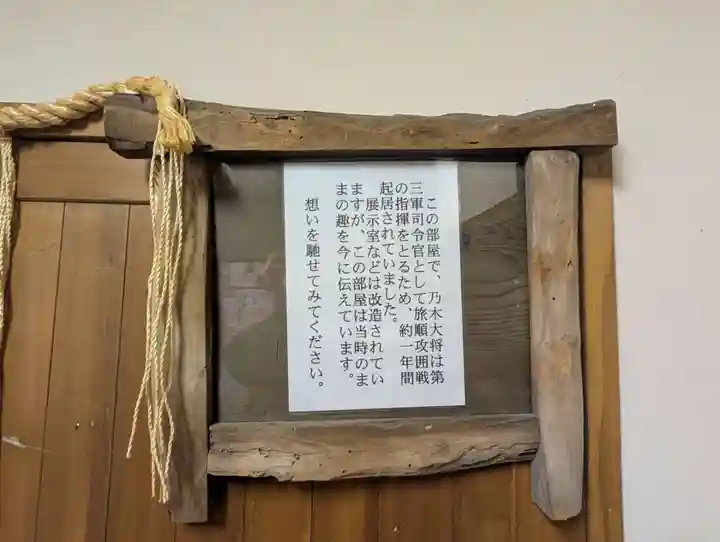 この部屋で、乃木大将は第
三軍司令官として旅順攻囲戦
の指揮をとるため、約一年間
起居されていました。
展示室などは改造されてい
ますが、この部屋は当時のま
まの趣を今に伝えています。
想いを馳せてみてください。